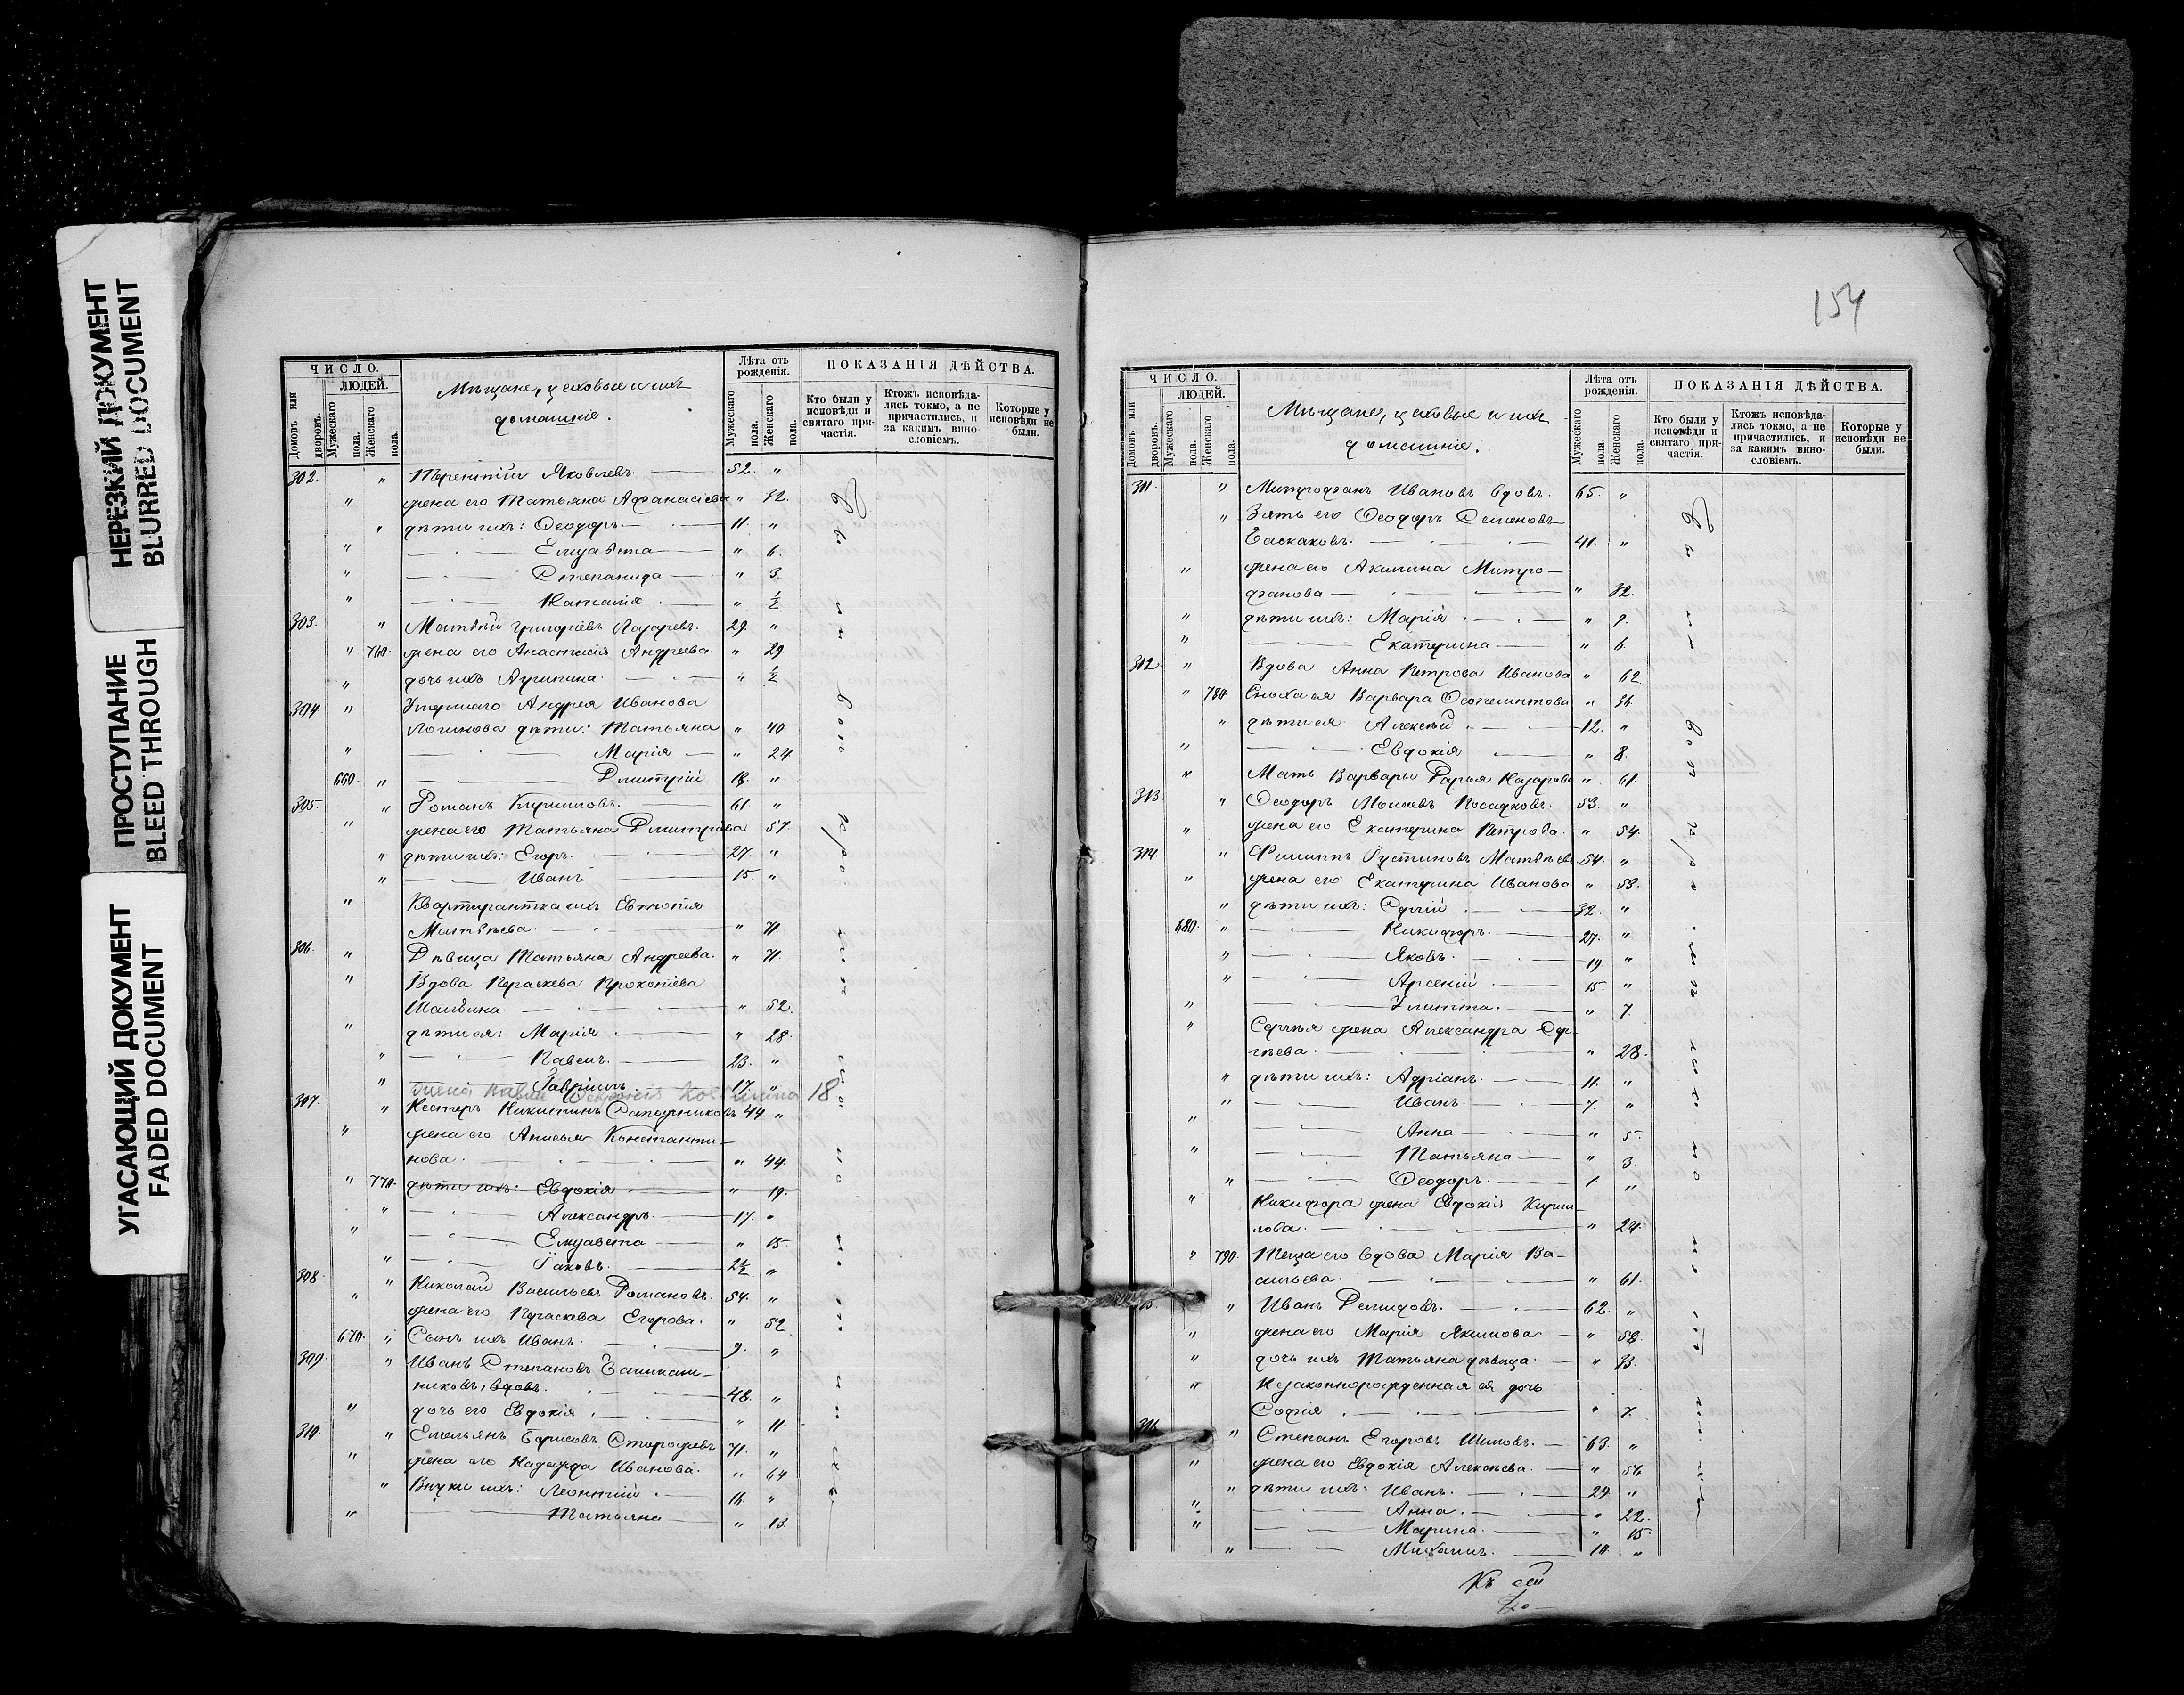 НЕРЕЗКИЙ ДОКУМЕНТ
BLURRED DOCUMENT
ПРОСТУПАНИЕ
BLEED THROUGH
УГАСАЮЩИЙ ДОКУМЕНТ
FADED DOCUMENT
ЧИСЛО.
ЛЮДЕЙ.
Домовъ или дворовъ.
Мужескаго пола.
Женскаго пола.
Мѣщане, цеховые и ихъ
домашніе.
Лѣта отъ рожденія.
Мужескаго пола.
Женскаго пола.
ПОКАЗАНІЯ ДѢЙСТВА.
Кто были у исповѣди и святаго причастія.
Ктожъ исповѣдались токмо, а не причастились, и за какимъ винословіемъ.
Которые у исповѣди не были.
302. " Терентій Яковлевъ 52. "
" жена его Татьяна Аѳанасіева " 32.
" дѣти ихъ: Ѳеодоръ 11. "
" Елизавета " 6.
" Степанида " 3
" Наталія " ½
303. " Матвѣй Григорьевъ Лазаревъ. 29. "
" 760. жена его Анастасія Андреева. " 29
" дочь ихъ Агрипина " ½
304 " Умершаго Андрея Иванова
Логинова дѣти: Татьяна " 40.
" Марія " 24
660. " Димитрій 18. "
305. " Романъ Кирилловъ. 61 "
" жена его Татьяна Димитріева 57.
" дѣти ихъ: Егоръ. 27. "
" Иванъ 15. "
" Квартирантка ихъ
Матвѣева. " 71
306. " Дѣвица Татьяна Андреева. " 71.
" Вдова Параскева Прокопіева
" 52.
" дѣти ея: Марія " 28.
" Павелъ. 23. "
" Гавріилъ 17. "
18
307. " Несторъ Никитинъ Сапожниковъ 44 "
" жена его Анисья Константи-
нова. " 44.
" 770. дѣти ихъ: Евдокія " 19.
" Александръ 17. "
" Елизавета " 15.
" Іаковъ. 2½ "
308. " Николай Васильевъ Романовъ. 54. "
" жена его Параскева Егорова. " 52
670. " Сынъ ихъ Иванъ. 9. "
309. " Иванъ Степановъ
никовъ, вдовъ. 48. "
" дочь его Евдокія " 11.
310. " Емельянъ Борисовъ Сторожевъ 71. "
" жена его Надежда Иванова. " 64
" Внуки ихъ: Леонтій 16. "
" Татьяна " 13.
154
ЧИСЛО.
ЛЮДЕЙ.
Домовъ или дворовъ.
Мужескаго пола.
Женскаго пола.
Мѣщане, цеховые и ихъ
домашніе.
Лѣта отъ рожденія.
Мужескаго пола.
Женскаго пола.
ПОКАЗАНІЯ ДѢЙСТВА.
Кто были у исповѣди и святаго причастія.
Ктожъ исповѣдались токмо, а не причастились, и за какимъ винословіемъ.
Которые у исповѣди не были.
311. " Митрофанъ Ивановъ вдовъ. 65. "
" Зять его Ѳеодоръ Семеновъ
Баскаковъ. 41. "
" жена его Акилина Митро-
фанова " 32.
" дѣти ихъ: Марія " 9.
" Екатерина " 6.
312. " Вдова Анна Петрова Иванова " 62.
" 780. Сноха ея Варвара " 36.
" дѣти ея Алексѣй 12. "
" Евдокія " 8.
" Мать Варвары Дарья Назарова " 61.
313. " Ѳеодоръ Моисеевъ Посадковъ. 53. "
" жена его Екатерина Петрова. " 54.
314. " Филиппъ Устиновъ Матвѣевъ 54. "
" жена его Екатерина Иванова " 53.
" дѣти ихъ: Сергій 32. "
680. " Никифоръ. 27. "
" Яковъ. 19. "
" Арсеній 15. "
" Улитта. " 7.
" Сергѣя жена Александра Сер-
гѣева. " 28.
" дѣти ихъ: Адріанъ. 11. "
" Иванъ. 7. "
" Анна " 5.
" Татьяна " 3.
" Ѳеодоръ. 1. "
" Никифора жена Евдокія Кирил-
лова. " 24.
" 790. Теща его вдова Марія Ва-
сильева. " 61.
" Иванъ Демидовъ. 62. "
" жена его Марія Якимова. " 58.
" дочь ихъ Татьяна дѣвица. " 33.
" Незаконнорожденная ея дочь
Софія " 7.
316. " Степанъ Егоровъ Шиловъ. 63. "
" жена его Евдокія Алексѣева. " 56
" дѣти ихъ: Иванъ. 29. "
" Анна. " 22.
" Марина. " 15
" Михаилъ. 10. "